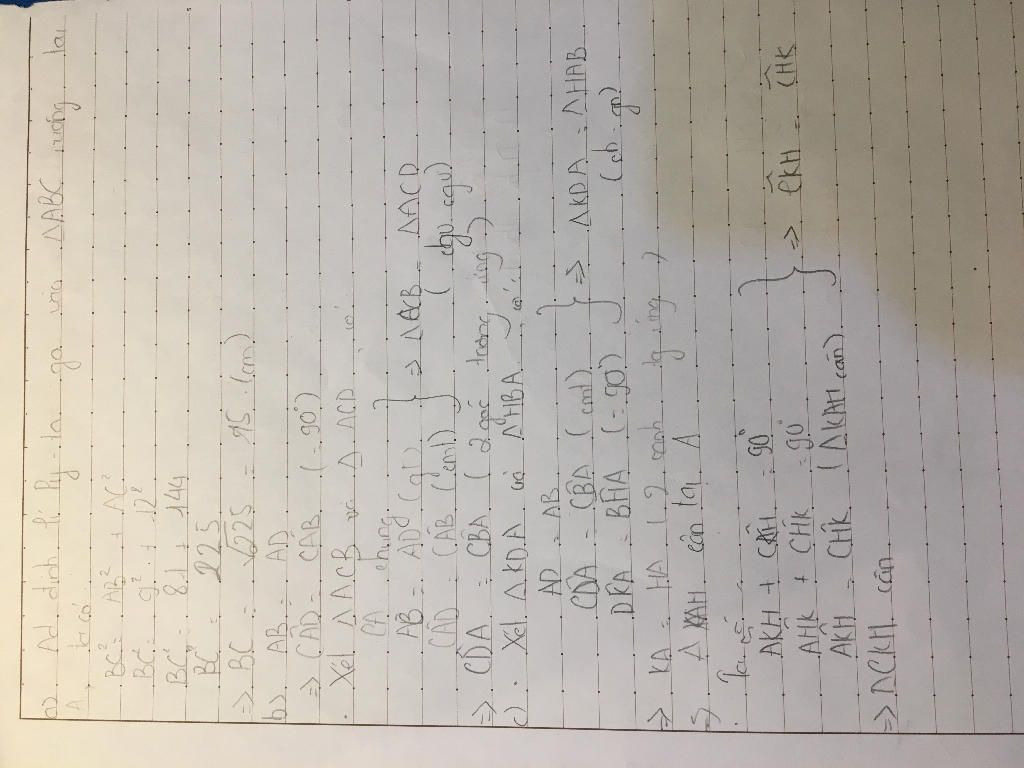 a) Ad định lí Py-ta-go vào ΔABC vuông tại
A, ta có:
BC² = AB² + AC²
BC² = 9² + 12²
BC² = 81 + 144
BC² = 225
=> BC = √225 = 15 (cm)
b) AB = AD
=> CÂD = CÂB (= 90°)
. Xét ΔACB và ΔACD có:
CA chung
AB = AD (gt)
CÂD = CÂB (cmt) } => ΔACB = ΔACD
(cgv-cgv)
=> CD̂A = CB̂A (2 góc tương ứng)
c) . Xét ΔKDA và ΔHBA có:
AD = AB
CD̂A = CB̂A (cmt)
DK̂A = BĤA (= 90°) } => ΔKDA = ΔHAB
(ch-gn)
=> KA = HA (2 cạnh tg ứng)
=> Δ KAH cân tại A
. Ta có:
AK̂H + CK̂H = 90°
AĤK + CĤK = 90°
AK̂H = CĤK (ΔKAH cân) } => CK̂H = CĤK
=> ΔCKH cân